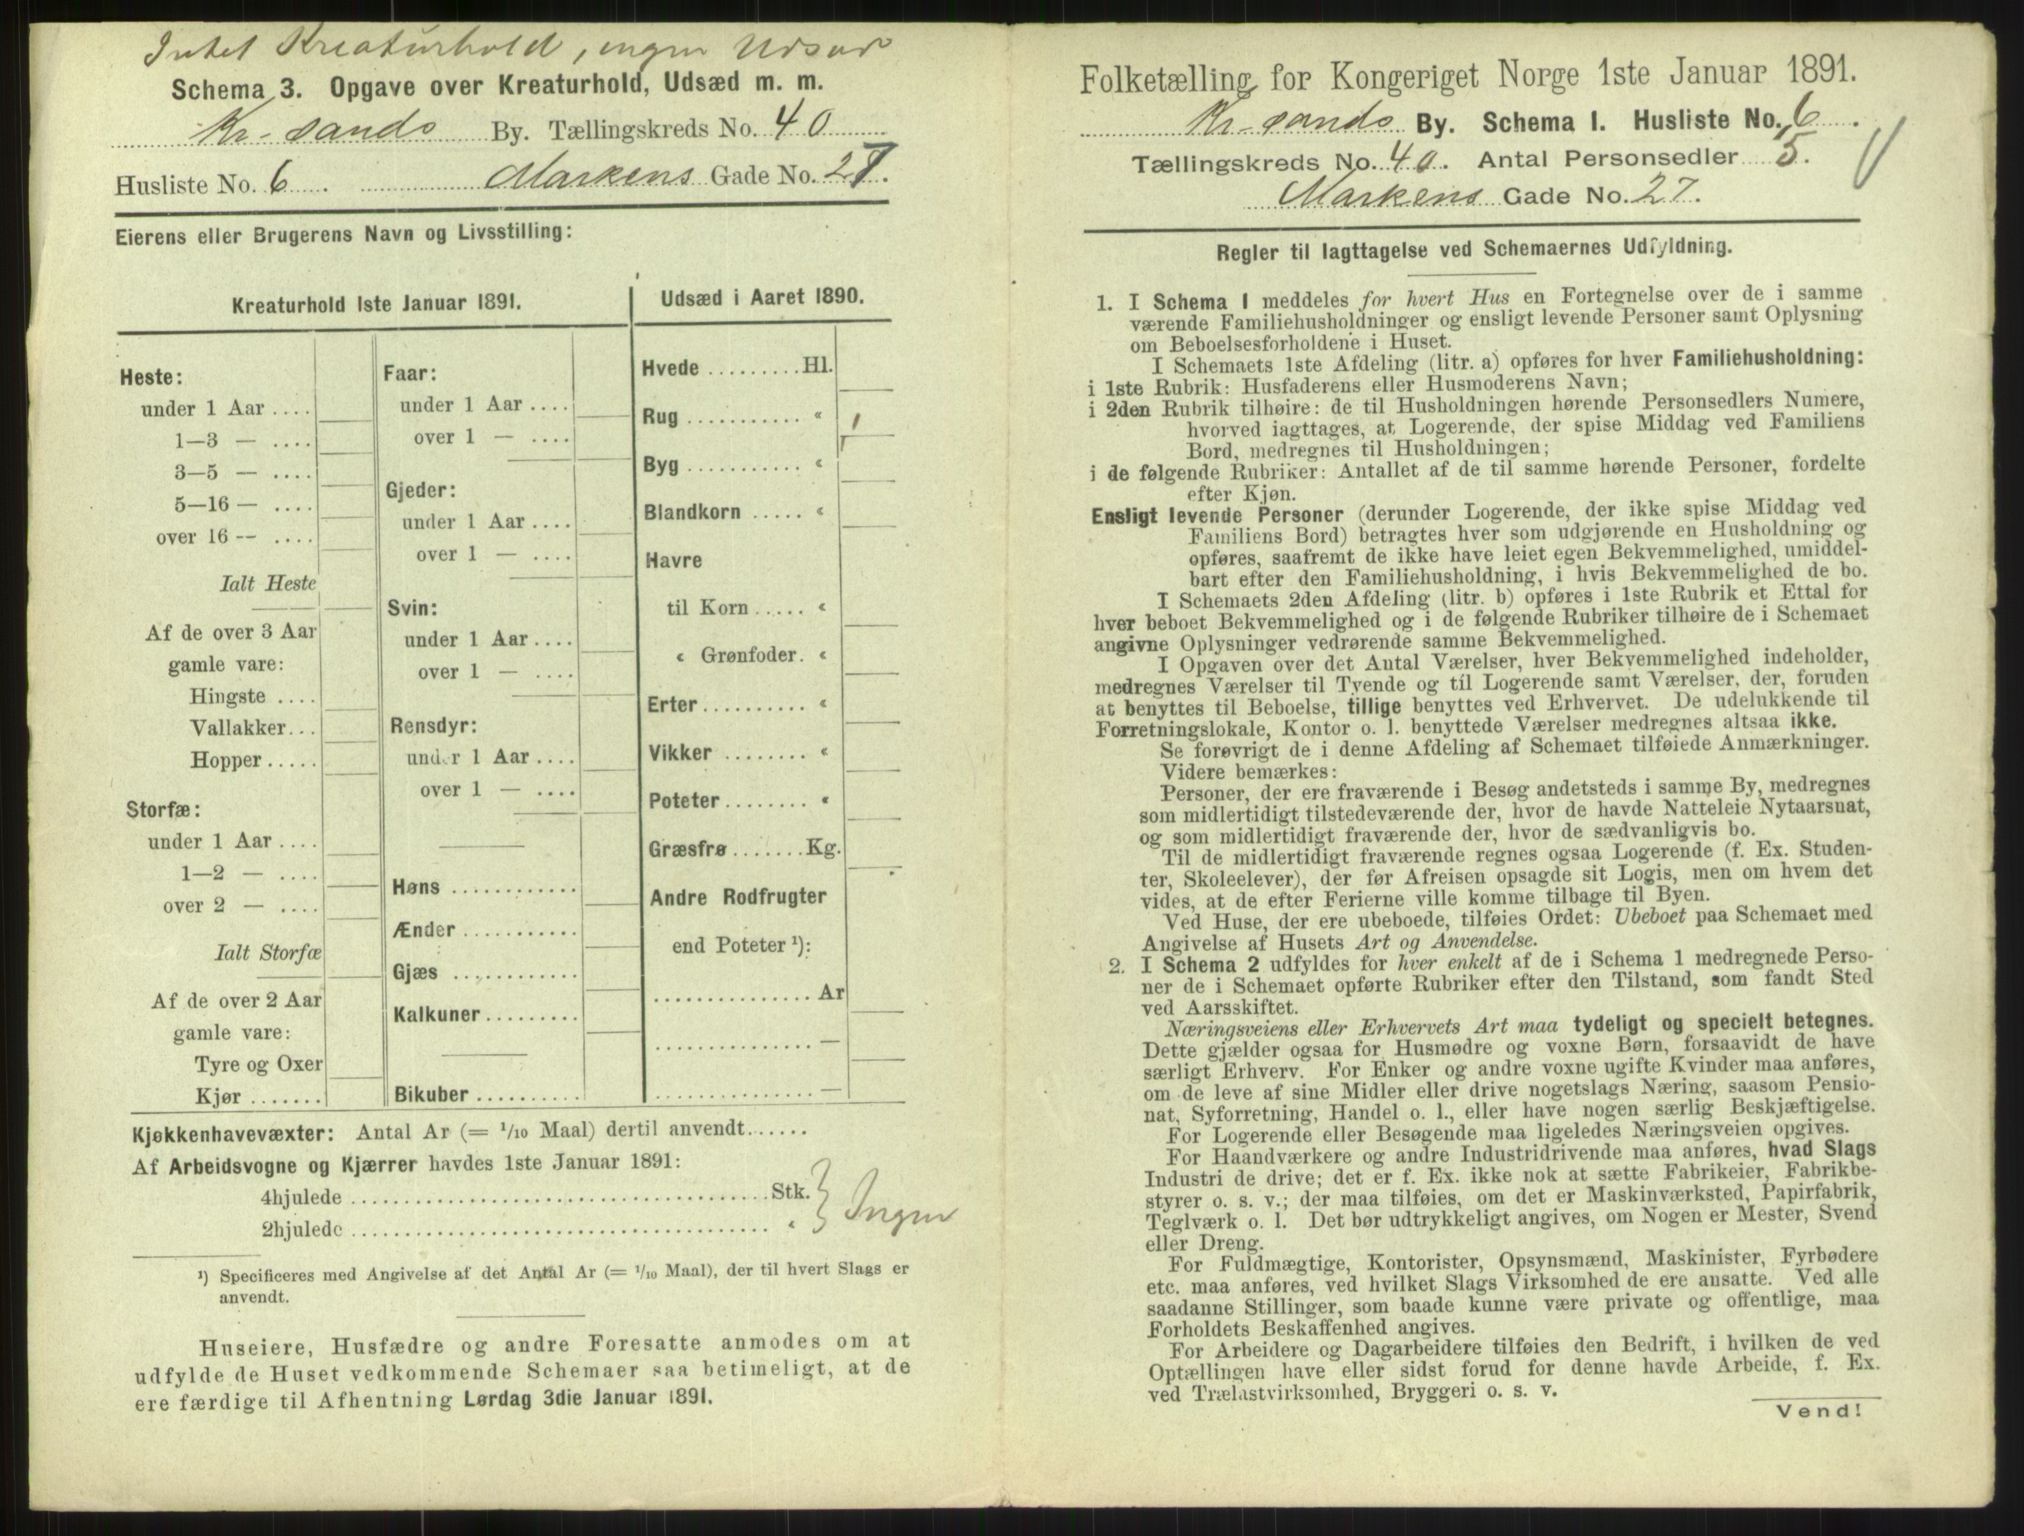 Intet Kreaturhold, ingen Udsæd
Schema 3. Opgave over Kreaturhold, Udsæd m. m.
Kr-sands By. Tællingskreds No. 40
Husliste No. 6. Markens Gade No. 27.
Eierens eller Brugerens Navn og Livsstilling:
Kreaturhold 1ste Januar 1891.
Heste:
under 1 Aar ....
1—3 — ....
3—5 — ....
5—16 — ....
over 16 -- ....
Ialt Heste
Af de over 3 Aar
gamle vare:
Hingste ....
Vallakker...
Hopper .....
Storfæ:
under 1 Aar ....
1—2 — ....
over 2 — ....
Ialt Storfæ
Af de over 2 Aar
gamle vare:
Tyre og Oxer
Kjør .......
Faar:
under 1 Aar ....
over 1 — ....
Gjeder:
under 1 Aar ....
over 1 — ....
Svin:
under 1 Aar ....
over 1 — ....
Rensdyr:
under 1 Aar ....
over 1 — ....
Høns ............
Ænder ...........
Gjæs ............
Kalkuner .........
Bikuber ..........
Udsæd i Aaret 1890.
Hvede .........Hl.
Rug ........... «
Byg ........... «
Blandkorn ..... «
Havre
til Korn ..... «
« Grønfoder. «
Erter .......... «
Vikker ........ «
Poteter ........ «
Græsfrø .......Kg.
Andre Rodfrugter
end Poteter ¹):
............... Ar
............... —
............... —
Kjøkkenhavevæxter: Antal Ar (= 1/10 Maal) dertil anvendt......
Af Arbeidsvogne og Kjærrer havdes 1ste Januar 1891:
4hjulede ........................................Stk.
2hjulede ........................................ «
} Ingen
¹) Specificeres med Angivelse af det Antal Ar (= 1/10 Maal), der til hvert Slags er
anvendt.
Huseiere, Husfædre og andre Foresatte anmodes om at
udfylde de Huset vedkommende Schemaer saa betimeligt, at de
ere færdige til Afhentning Lørdag 3die Januar 1891.
Folketælling for Kongeriget Norge 1ste Januar 1891.
Kr-sands By. Schema I. Husliste No. 6.
Tællingskreds No. 40. Antal Personsedler 15.
Markens Gade No. 27.
Regler til Iagttagelse ved Schemaernes Udfyldning.
1. I Schema 1 meddeles for hvert Hus en Fortegnelse over de i samme
værende Familiehusholdninger og ensligt levende Personer samt Oplysning
om Beboelsesforholdene i Huset.
I Schemaets 1ste Afdeling (litr. a) opføres for hver Familiehusholdning:
i 1ste Rubrik: Husfaderens eller Husmoderens Navn;
i 2den Rubrik tilhøire: de til Husholdningen hørende Personsedlers Numere,
hvorved iagttages, at Logerende, der spise Middag ved Familiens
Bord, medregnes til Husholdningen;
i de følgende Rubriker: Antallet af de til samme hørende Personer, fordelte
efter Kjøn.
Ensligt levende Personer (derunder Logerende, der ikke spise Middag ved
Familiens Bord) betragtes hver som udgjørende en Husholdning og
opføres, saafremt de ikke have leiet egen Bekvemmelighed, umiddel-
bart efter den Familiehusholdning, i hvis Bekvemmelighed de bo.
I Schemaets 2den Afdeling (litr. b) opføres i 1ste Rubrik et Ettal for
hver beboet Bekvemmelighed og i de følgende Rubriker tilhøire de i Schemaet
angivne Oplysninger vedrørende samme Bekvemmelighed.
I Opgaven over det Antal Værelser, hver Bekvemmelighed indeholder,
medregnes Værelser til Tyende og til Logerende samt Værelser, der, foruden
at benyttes til Beboelse, tillige benyttes ved Erhvervet. De udelukkende til
Forretningslokale, Kontor o. l. benyttede Værelser medregnes altsaa ikke.
Se forøvrigt de i denne Afdeling af Schemaet tilføiede Anmærkninger.
Videre bemærkes:
Personer, der ere fraværende i Besøg andetsteds i samme By, medregnes
som midlertidigt tilstedeværende der, hvor de havde Natteleie Nytaarsnat,
og som midlertidigt fraværende der, hvor de sædvanligvis bo.
Til de midlertidigt fraværende regnes ogsaa Logerende (f. Ex. Studen-
ter, Skoleelever), der før Afreisen opsagde sit Logis, men om hvem det
vides, at de efter Ferierne ville komme tilbage til Byen.
Ved Huse, der ere ubeboede, tilføies Ordet: Ubeboet paa Schemaet med
Angivelse af Husets Art og Anvendelse.
2. I Schema 2 udfyldes for hver enkelt af de i Schema 1 medregnede Perso-
ner de i Schemaet opførte Rubriker efter den Tilstand, som fandt Sted
ved Aarsskiftet.
Næringsveiens eller Erhvervets Art maa tydeligt og specielt betegnes.
Dette gjælder ogsaa for Husmødre og voxne Børn, forsaavidt de have
særligt Erhverv. For Enker og andre voxne ugifte Kvinder maa anføres,
om de leve af sine Midler eller drive nogetslags Næring, saasom Pensio-
nat, Syforretning, Handel o. l., eller have nogen særlig Beskjæftigelse.
For Logerende eller Besøgende maa ligeledes Næringsveien opgives.
For Haandværkere og andre Industridrivende maa anføres, hvad Slags
Industri de drive; det er f. Ex. ikke nok at sætte Fabrikeier, Fabrikbe-
styrer o. s. v.; der maa tilføies, om det er Maskinværksted, Papirfabrik,
Teglværk o. l. Det bør udtrykkeligt angives, om Nogen er Mester, Svend
eller Dreng.
For Fuldmægtige, Kontorister, Opsynsmænd, Maskinister, Fyrbødere
etc. maa anføres, ved hvilket Slags Virksomhed de ere ansatte. Ved alle
saadanne Stillinger, som baade kunne være private og offentlige, maa
Forholdets Beskaffenhed angives.
For Arbeidere og Dagarbeidere tilføies den Bedrift, i hvilken de ved
Optællingen have eller sidst forud for denne havde Arbeide, f. Ex.
ved Trælastvirksomhed, Bryggeri o. s. v.
Vend!